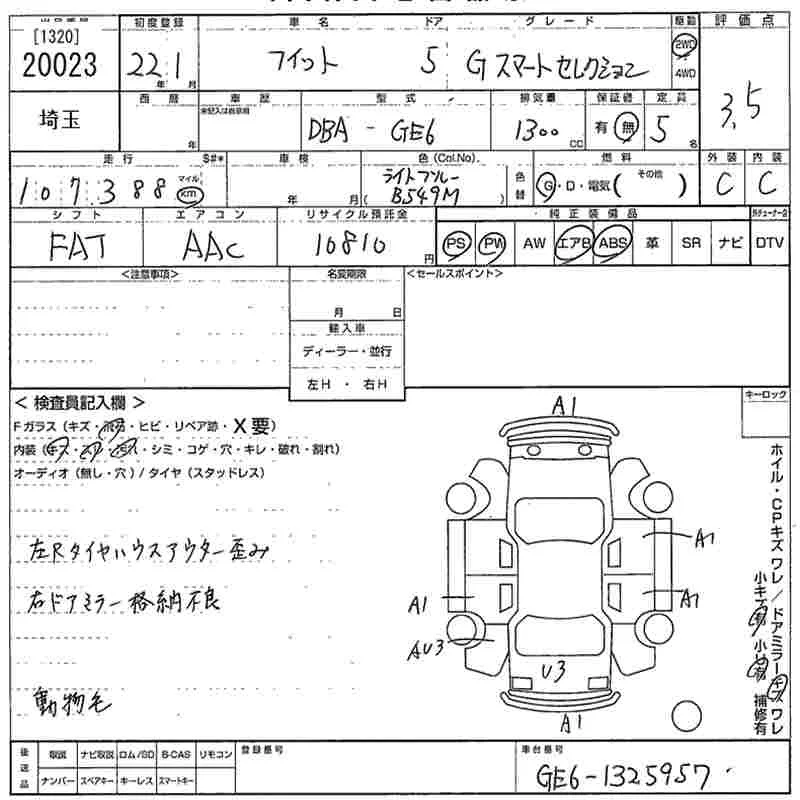 出品番号 初度登録 車名 ドア グレード 駆動 評価点
[1320]
20023 22年 1月 フィット 5 G スマートセレクション 2WD 4WD 3.5
埼玉 西暦 年 車歴 未記入は自家用 型式 DBA - GE6 排気量 1300 cc 保証書 有 無 定員 5 名
走行 S#* 車検 色(Col.No). 燃料 外装 内装
107388 マイル km 年 月 ( ライトブルー B549M ) 色替 G・D・電気( その他 ) C C
シフト エアコン リサイクル預託金 純正装備品
FAT AAC 10810 円 PS PW AW エアB ABS 革 SR ナビ DTV
<注意事項> 名変期限 <セールスポイント>
月 日
輸入車
ディーラー・並行
左H ・ 右H
< 検査員記入欄 > キーロック
Fガラス (キズ・飛石・ヒビ・リペア跡・X要)
内装 (キズ・スレ・汚れ・シミ・コゲ・穴・キレ・破れ・割れ)
オーディオ (無し・穴) / タイヤ (スタッドレス)
左Rタイヤハウスアウター歪み
右ドアミラー格納不良
動物毛
A1
A1
A1
A1
AU3
U3
A1
ホイル・CPキズ ワレ / ドアミラーキズ ワレ
小キズ有 小凹有 補修有
後送品 取説 ナビ取説 ロム/SD B-CAS リモコン 登録番号 車台番号
ナンバー スペアキー キーレス スマートキー GE6-1325957